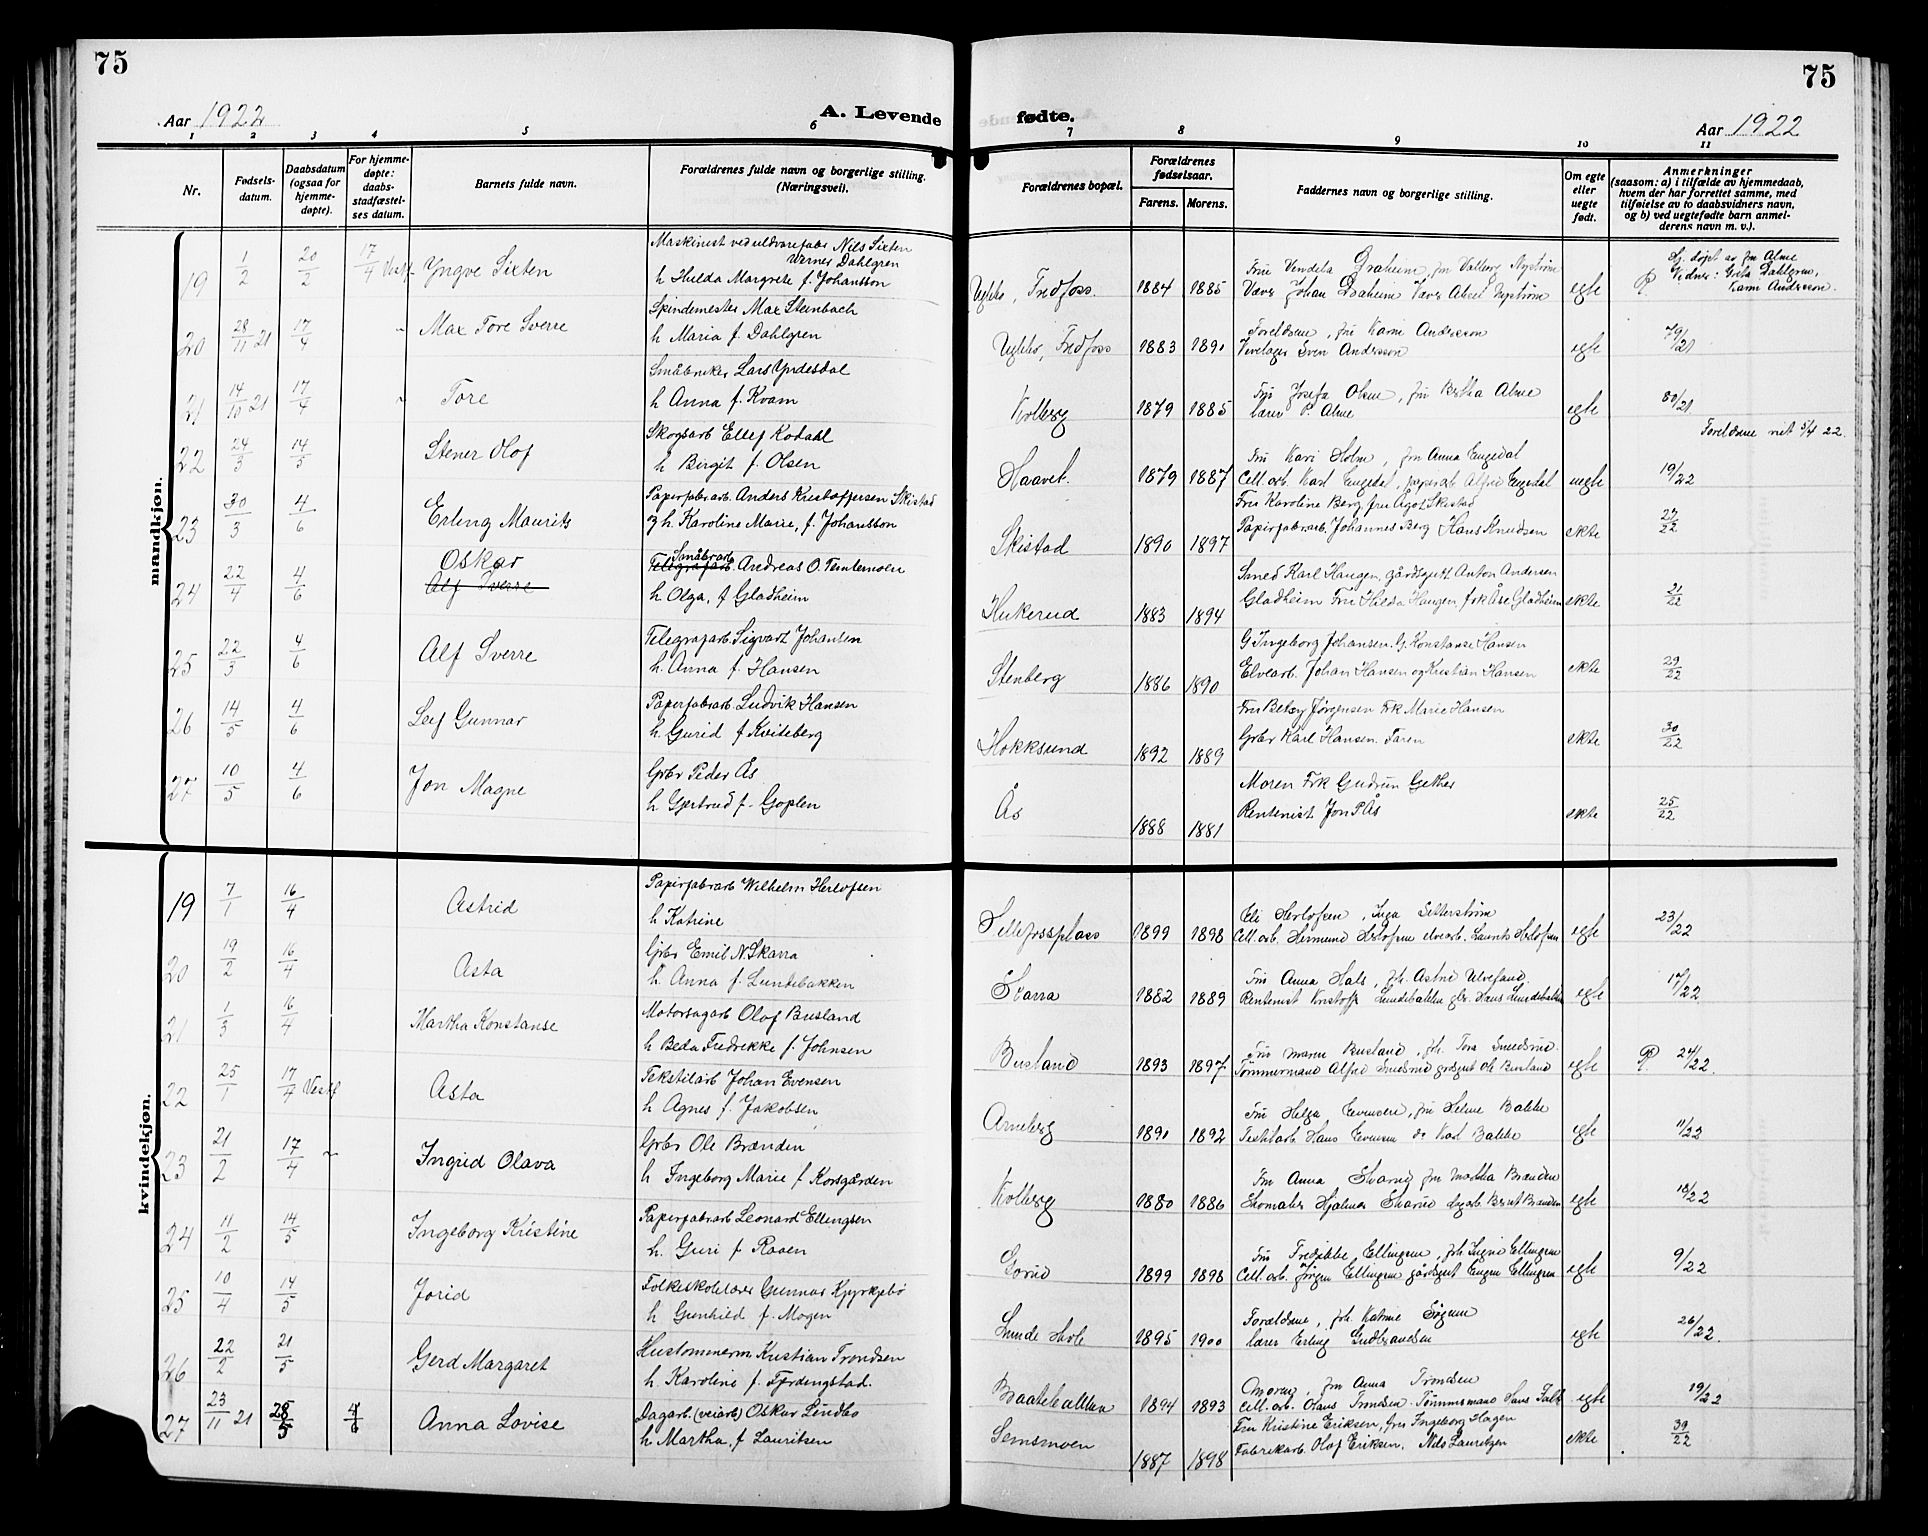 75
75
Aar 1922
A. Levende
fødte.
Aar 1922
1 2 3 4 5 6 7 8 9 10 11
Nr.
Fødsels-
datum.
Daabsdatum
(ogsaa for
hjemme-
døpte).
For hjemme-
døpte:
daabs-
stadfæstel-
ses datum.
Barnets fulde navn.
Forældrenes fulde navn og borgerlige stilling.
(Næringsvei).
Forældrenes bopæl.
Forældrenes
fødselsaar.
Farens. Morens.
Faddernes navn og borgerlige stilling.
Om egte
eller
uegte
født.
Anmerkninger
(saasom: a) i tilfælde av hjemmedaab,
hvem der har forrettet samme, med
tilføielse av to daabsvidners navn,
og b) ved uegtefødte barn anmel-
derens navn m. v.).
mandkjøn.
19 1/2 20/2 17/4 Yngve Sixten
Maskinist ved uldvarefabr Nils Sixten
Verner Dahlgren
h Hulda Margrete f. Johansson
Fredfoss. 1884 1885
Fru Vendela Draheim, fru Valborg Nystrøm
Væver Johan Draheim Væver Aksel Nystrøm egte
Hj. døpt av fru Alme
Vidner: Greta Dahlgren,
Karin Andersson.
20 28/11 21 17/4 " Max Tore Sverre
Spindemester Max Steinbach
h Maria f. Dahlgren
Fredfoss 1883 1890
Forældrene, fru Karin Andersson
Sven Andersson egte 79/21
21 14/10 21 17/4 " Tore
Småbruker Lars Yndesdal
h Anna f. Kvam
Kolberg 1879 1885
Fru Josefa Olsen, fru Bertha Alme
lærer P. Alme egte 80/21
22 24/3 14/5 Stener Olof
Skogsarb Ellef Kodahl
h Birgit f. Olsen
Haavet. 1879 1887
Fru Kari Holm, fru Anna Engedal
Cell.arb. Karl Engedal, paperarb Alfred Engedal uegte 19/22
Forældrene viet 5/4 22.
23 30/3 4/6 Erling Maurits
Papirfabrarb. Anders Kristoffersen Skistad
h. Karoline Marie, f. Johansson
Skistad 1890 1897
Fru Karoline Berg, fru Ågot Skistad
Papirfabrarb. Johannes Berg Hans Knudsen ekte 27/22
24 22/4 4/6 Oskar
Alf Sverre
Småbrarb
Telegrafarb. Andreas O. Temternoen
h. Olga, f Gladheim
Hukerud 1883 1894
Smed Karl Haugen, gårdsgutt Anton Andersen
Gladheim Fru Hilda Haugen, frk Åse Gladheim ekte 21/22
25 22/3 4/6 Alf Sverre
Telegrafarb. Sigvart Johansen
h. Anna f. Hansen
Stenberg 1886 1890
G Ingeborg Johansen. G. Konstanse Hansen
Elvearb. Johan Hansen og Kristian Hansen ekte 29/22
26 14/5 4/6 Leif Gunnar
Papirfabrarb. Ludvik Hansen
h. Gurid f Kviteberg
Hokksund 1892 1889
Fru Betsy Jørgensen Frk Marie Hansen
Grbr Karl Hansen. Faren ekte 30/22
27 10/5 4/6 Jon Magne
Grbr Peder Ås
h Gjertrud f. Goplen
Ås 1888 1881
Moren Frk Gudrun Gether
Rentenist Jon P Ås ekte 25/22
kvindekjøn.
19 7/1 16/4 Astrid
Papirfabrarb Wilhelm Herlofsen
h Katrine
1899 1898
Eli Herlofsen, Inga Setterstrøm
Cell.arb. Hermund Herlofsen elvearb. Laurits Herlofsen egte 23/22
20 19/2 16/4 Asta
Grbr Emil N. Skarra
h. Anna f. Lundebakken
Skarra 1882 1889
Fru Anna Hals, frk. Astrid
Rentenist Kristoffer Lundebakken gbr. Hans Lundebakken egte 17/22
21 1/3 16/4 Martha Konstanse
Motorsagarb Olof Busland
h Beda Fredrikke f. Johnsen
Busland 1893 1897
Fru Maren Busland, frk. Tora Smedsrud.
Tømmermand Alfred Smedsrud grdsgut Ole Busland egte 24/22.
22 25/1 17/4 Vestf Asta
Tekstilarb Johan Evensen
h Agnes f. Jakobsen
Arneberg 1890 1892
Fru Helga Evensen, fru Helene Bakke
Textilarb Hans Evensen do Karl Bakke egte 11/22
23 21/2 17/4 " Ingrid Olava
Grbr Ole Brænden
h Ingeborg Marie f Korsgården
Kolberg 1880 1886
Fru Anna Skarud fru Martha Brænden
Skomaker Hjalmar Skarud dagarb. Bernt Brænden egte 18/22
24 11/2 14/5 Ingeborg Kristine
Papirfabrarb Leonard Ellingsen
h. Guri f Raaen
Gorud 1899 1898
Fru Fredrikke Ellingsen, frk Ingrid Ellingsen
Cell.arb. Jørgen Ellingsen gårdsgut Eugen Ellingsen egte 9/22
25 10/4 14/5 Jorid
Folkeskolelærer Gunnar Kyrkjebø
h Gunhild f. Mogen
Lunde skole 1895 1900
Forældrene, frk. Katrine Søgum
lærer Erling Gudbrandsen egte 26/22
26 22/2 21/5 Gerd Margaret
Hustømmerm Kristian Trondsen
h. Karoline f. Fjerdingstad.
Baatebakken 1894 1893
Moren, fru Anna Trondsen
Cell.arb. Olaus Trondsen. Tømmermand Hans Falk egte 19/22
27 23/11 21 28/5 4/6 Anna Lovise
Dagarb. (veiarb) Oskar Lindbo
h. Martha, f Lauritsen
Semsmoen 1887 1898
Fru Kristine Eriksen, fru Ingeborg Hagen
Fabrikarb. Olaf Eriksen. Nils Lauritzen ekte 39/22